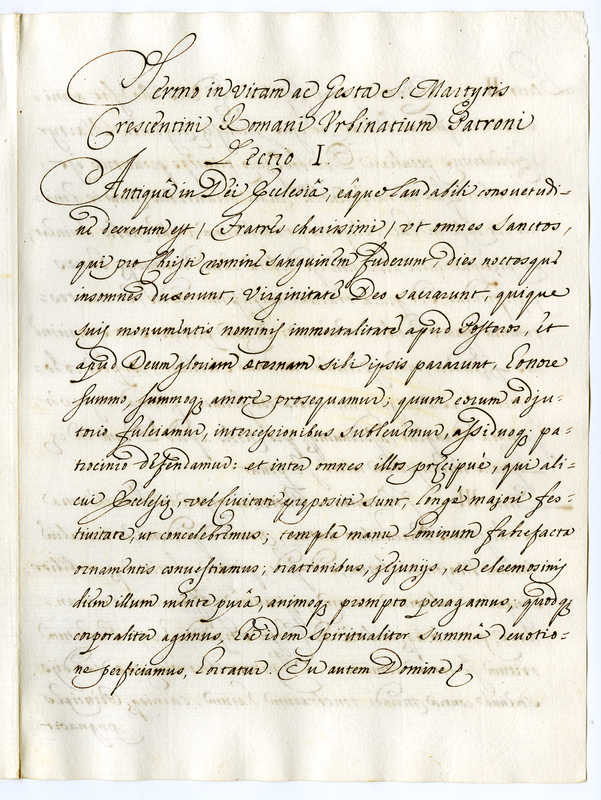 Sermo in vitam ac Gesta S. Martyris
Crescentini Romani Urbinatium Patroni
Lectio I.
Antiquâ in Dei Ecclesiâ, eâque laudabili consuetudi-
ne decretum est / Fratres charissimi / ut omnes Sanctos,
qui pro Christi nomine sanguinem fuderunt, dies noctesque
insomnes duxerunt, Virginitatẽ Deo sacrarunt, quique
suis monumentis nominis immortalitatẽ apud Posteros, Et
apud Deum gloriam æternam sibi ipsis pararunt, honore
summo, summoq; amore prosequamur; quum eorum adju-
torio fulciamur, intercessionibus sublevemur, assiduoq; pa-
trocinio defendamur: et inter omnes illos pręcipuè, qui ali-
cui Ecclesię, vel Civitati prępositi sunt, longè majori fes-
tivitate, ut concelebremus; templa manu hominum fabrefacta
ornamentis convestiamus; orationibus, jejunijs, ac eleemosinis
diem illum mente purâ, animoq; prompto peragamus; quodq;
corporaliter agimus, hoc idem spiritualiter summâ devotio-
ne perficiamus, hortatur. Tu autem Domine